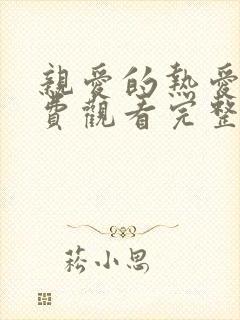 親愛的熱愛
費觀看完整
菘小思